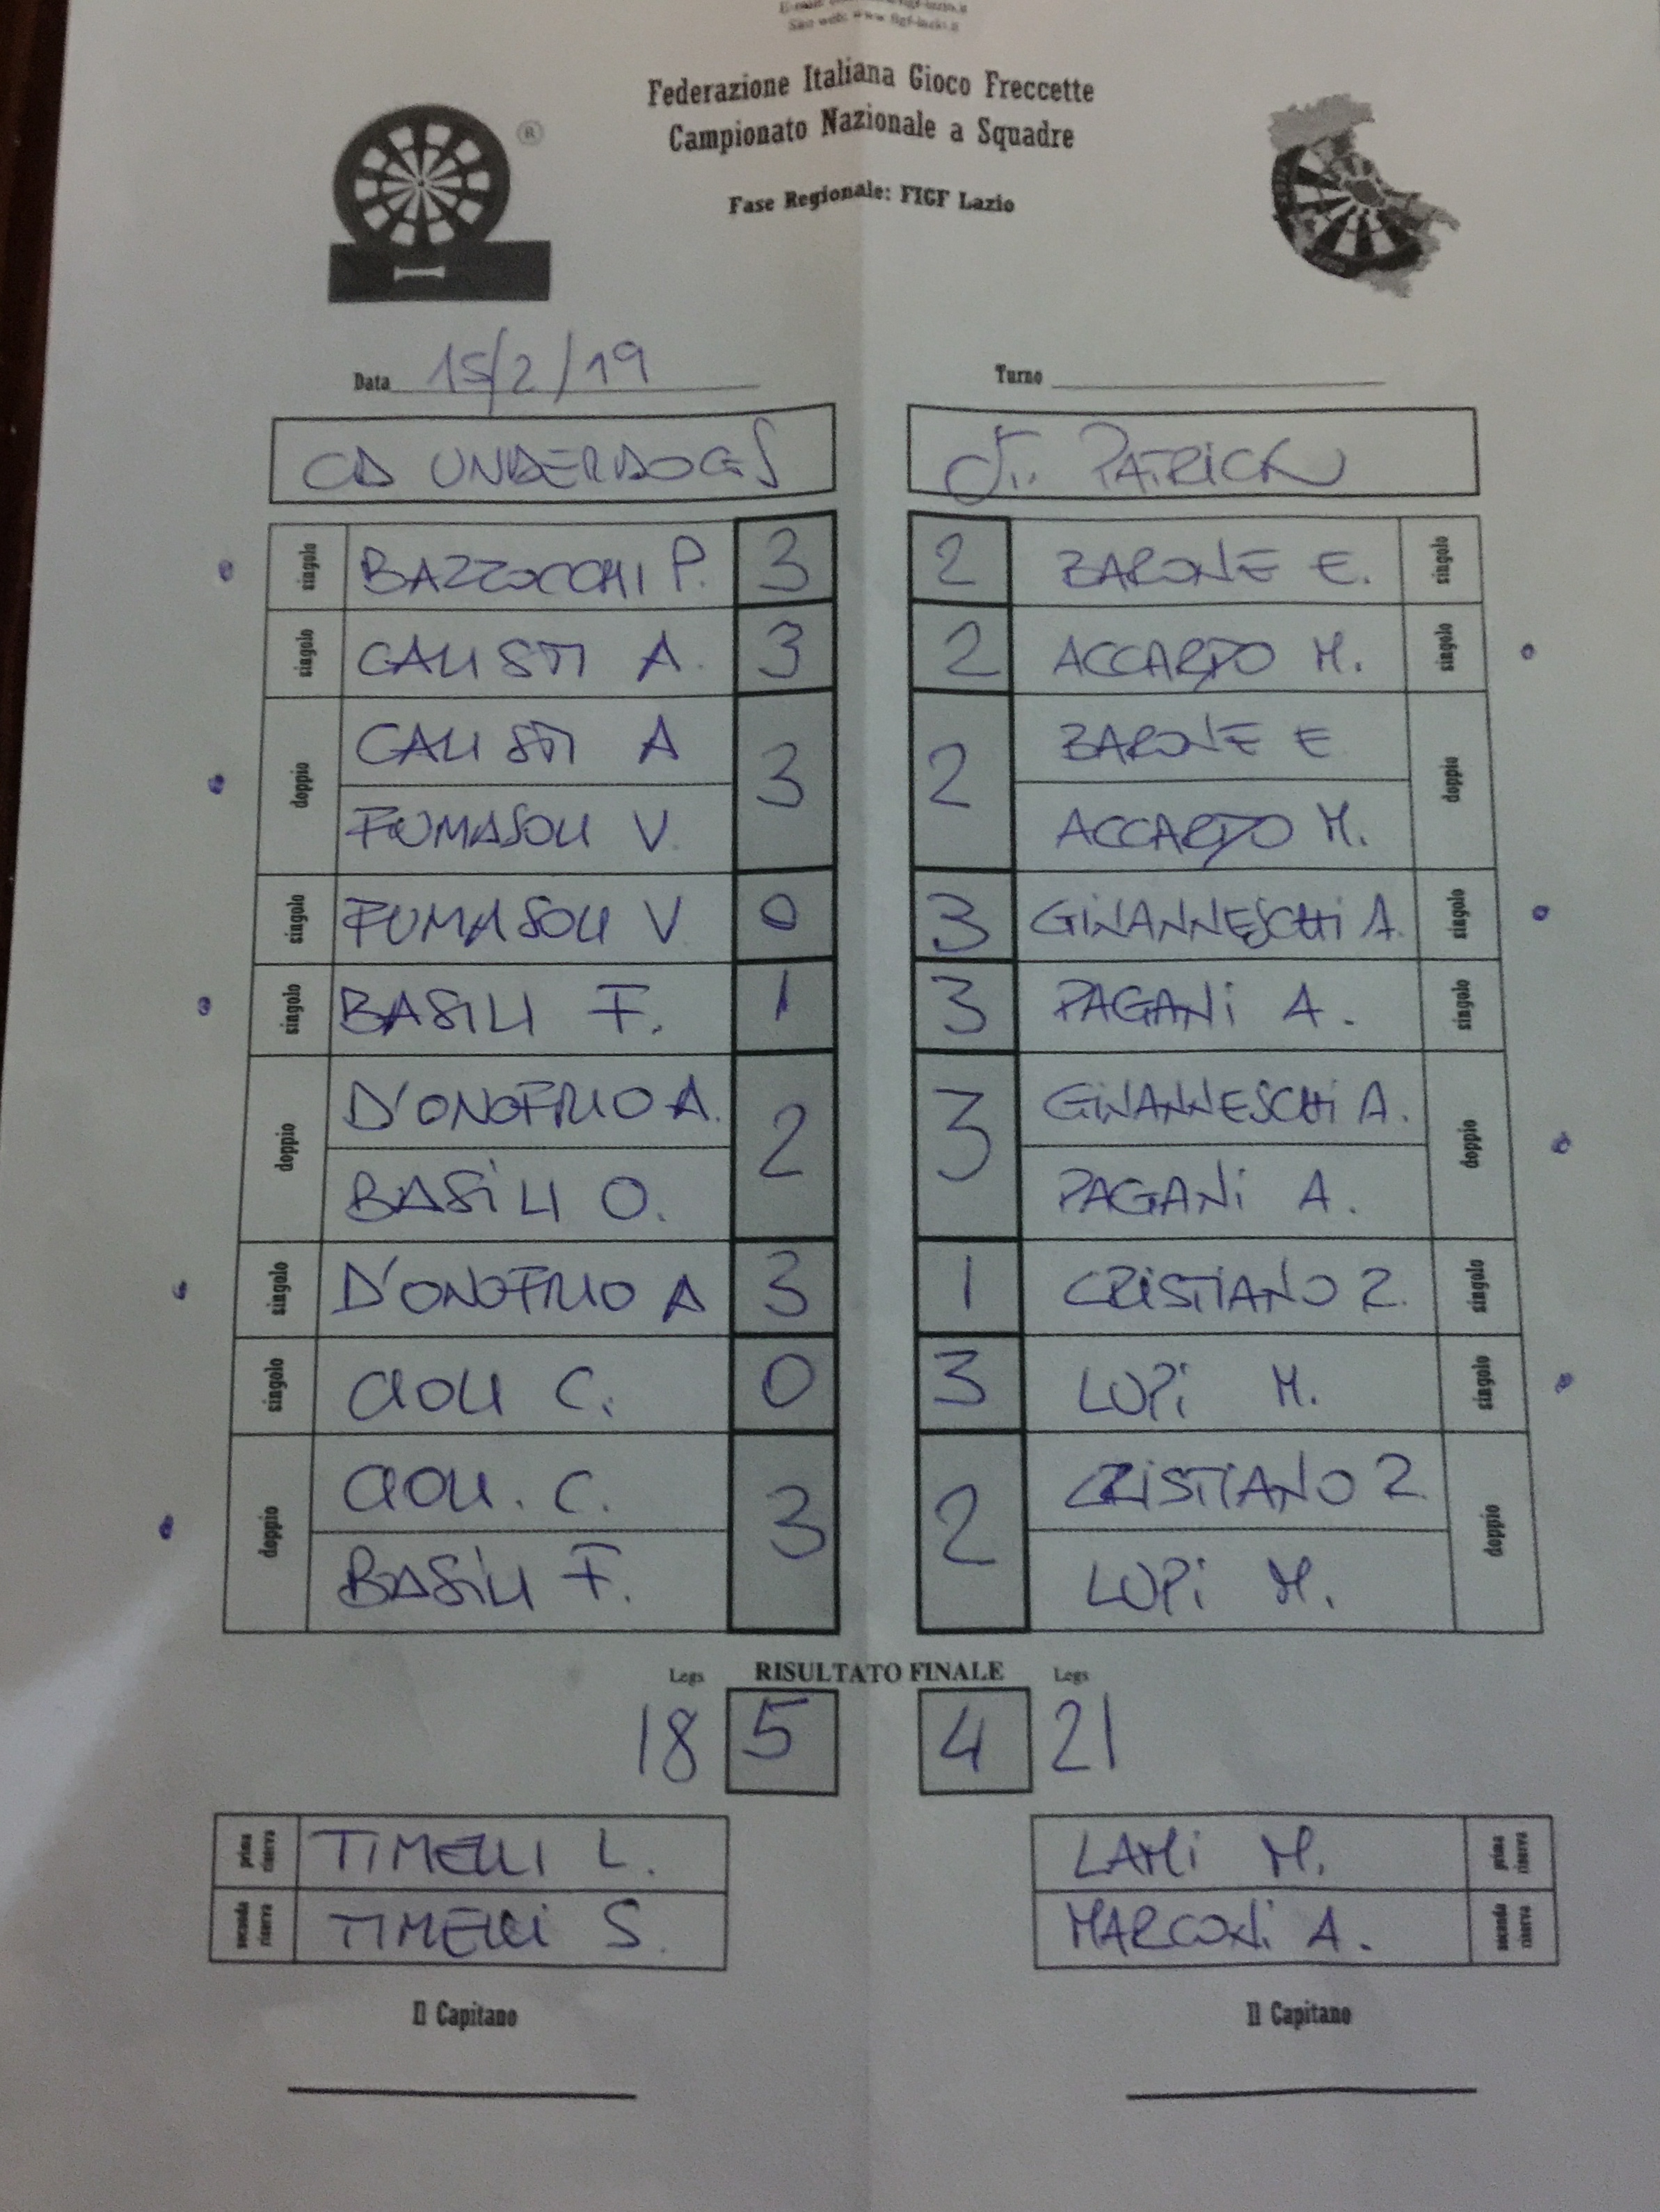 Sito web: www.figf-lazio.it
Federazione Italiana Gioco Freccette
Campionato Nazionale a Squadre
Fase Regionale: FIGF Lazio
®
Data 15/2/19
Turno
CD UNDERDOGS
St. PATRICK
singolo BAZZOCCHI P. 3 2 BARONE E. singolo
singolo CALISTI A. 3 2 ACCARDO M. singolo
doppio CALISTI A 3 2 BARONE E doppio
FUMASOLI V. ACCARDO M.
singolo FUMASOLI V 0 3 GINANNESCHI A. singolo
singolo BASILI F. 1 3 PAGANI A. singolo
doppio D'ONOFRIO A. 2 3 GINANNESCHI A. doppio
BASILI O. PAGANI A.
singolo D'ONOFRIO A 3 1 CRISTIANO R. singolo
singolo CIOLI C. 0 3 LUPI M. singolo
doppio CIOLI. C. 3 2 CRISTIANO R. doppio
BASILI F. LUPI M.
Legs RISULTATO FINALE Legs
18 5 4 21
prima riserva TIMELLI L. LAMI M. prima riserva
seconda riserva TIMELLI S. MARCONI A. seconda riserva
Il Capitano Il Capitano